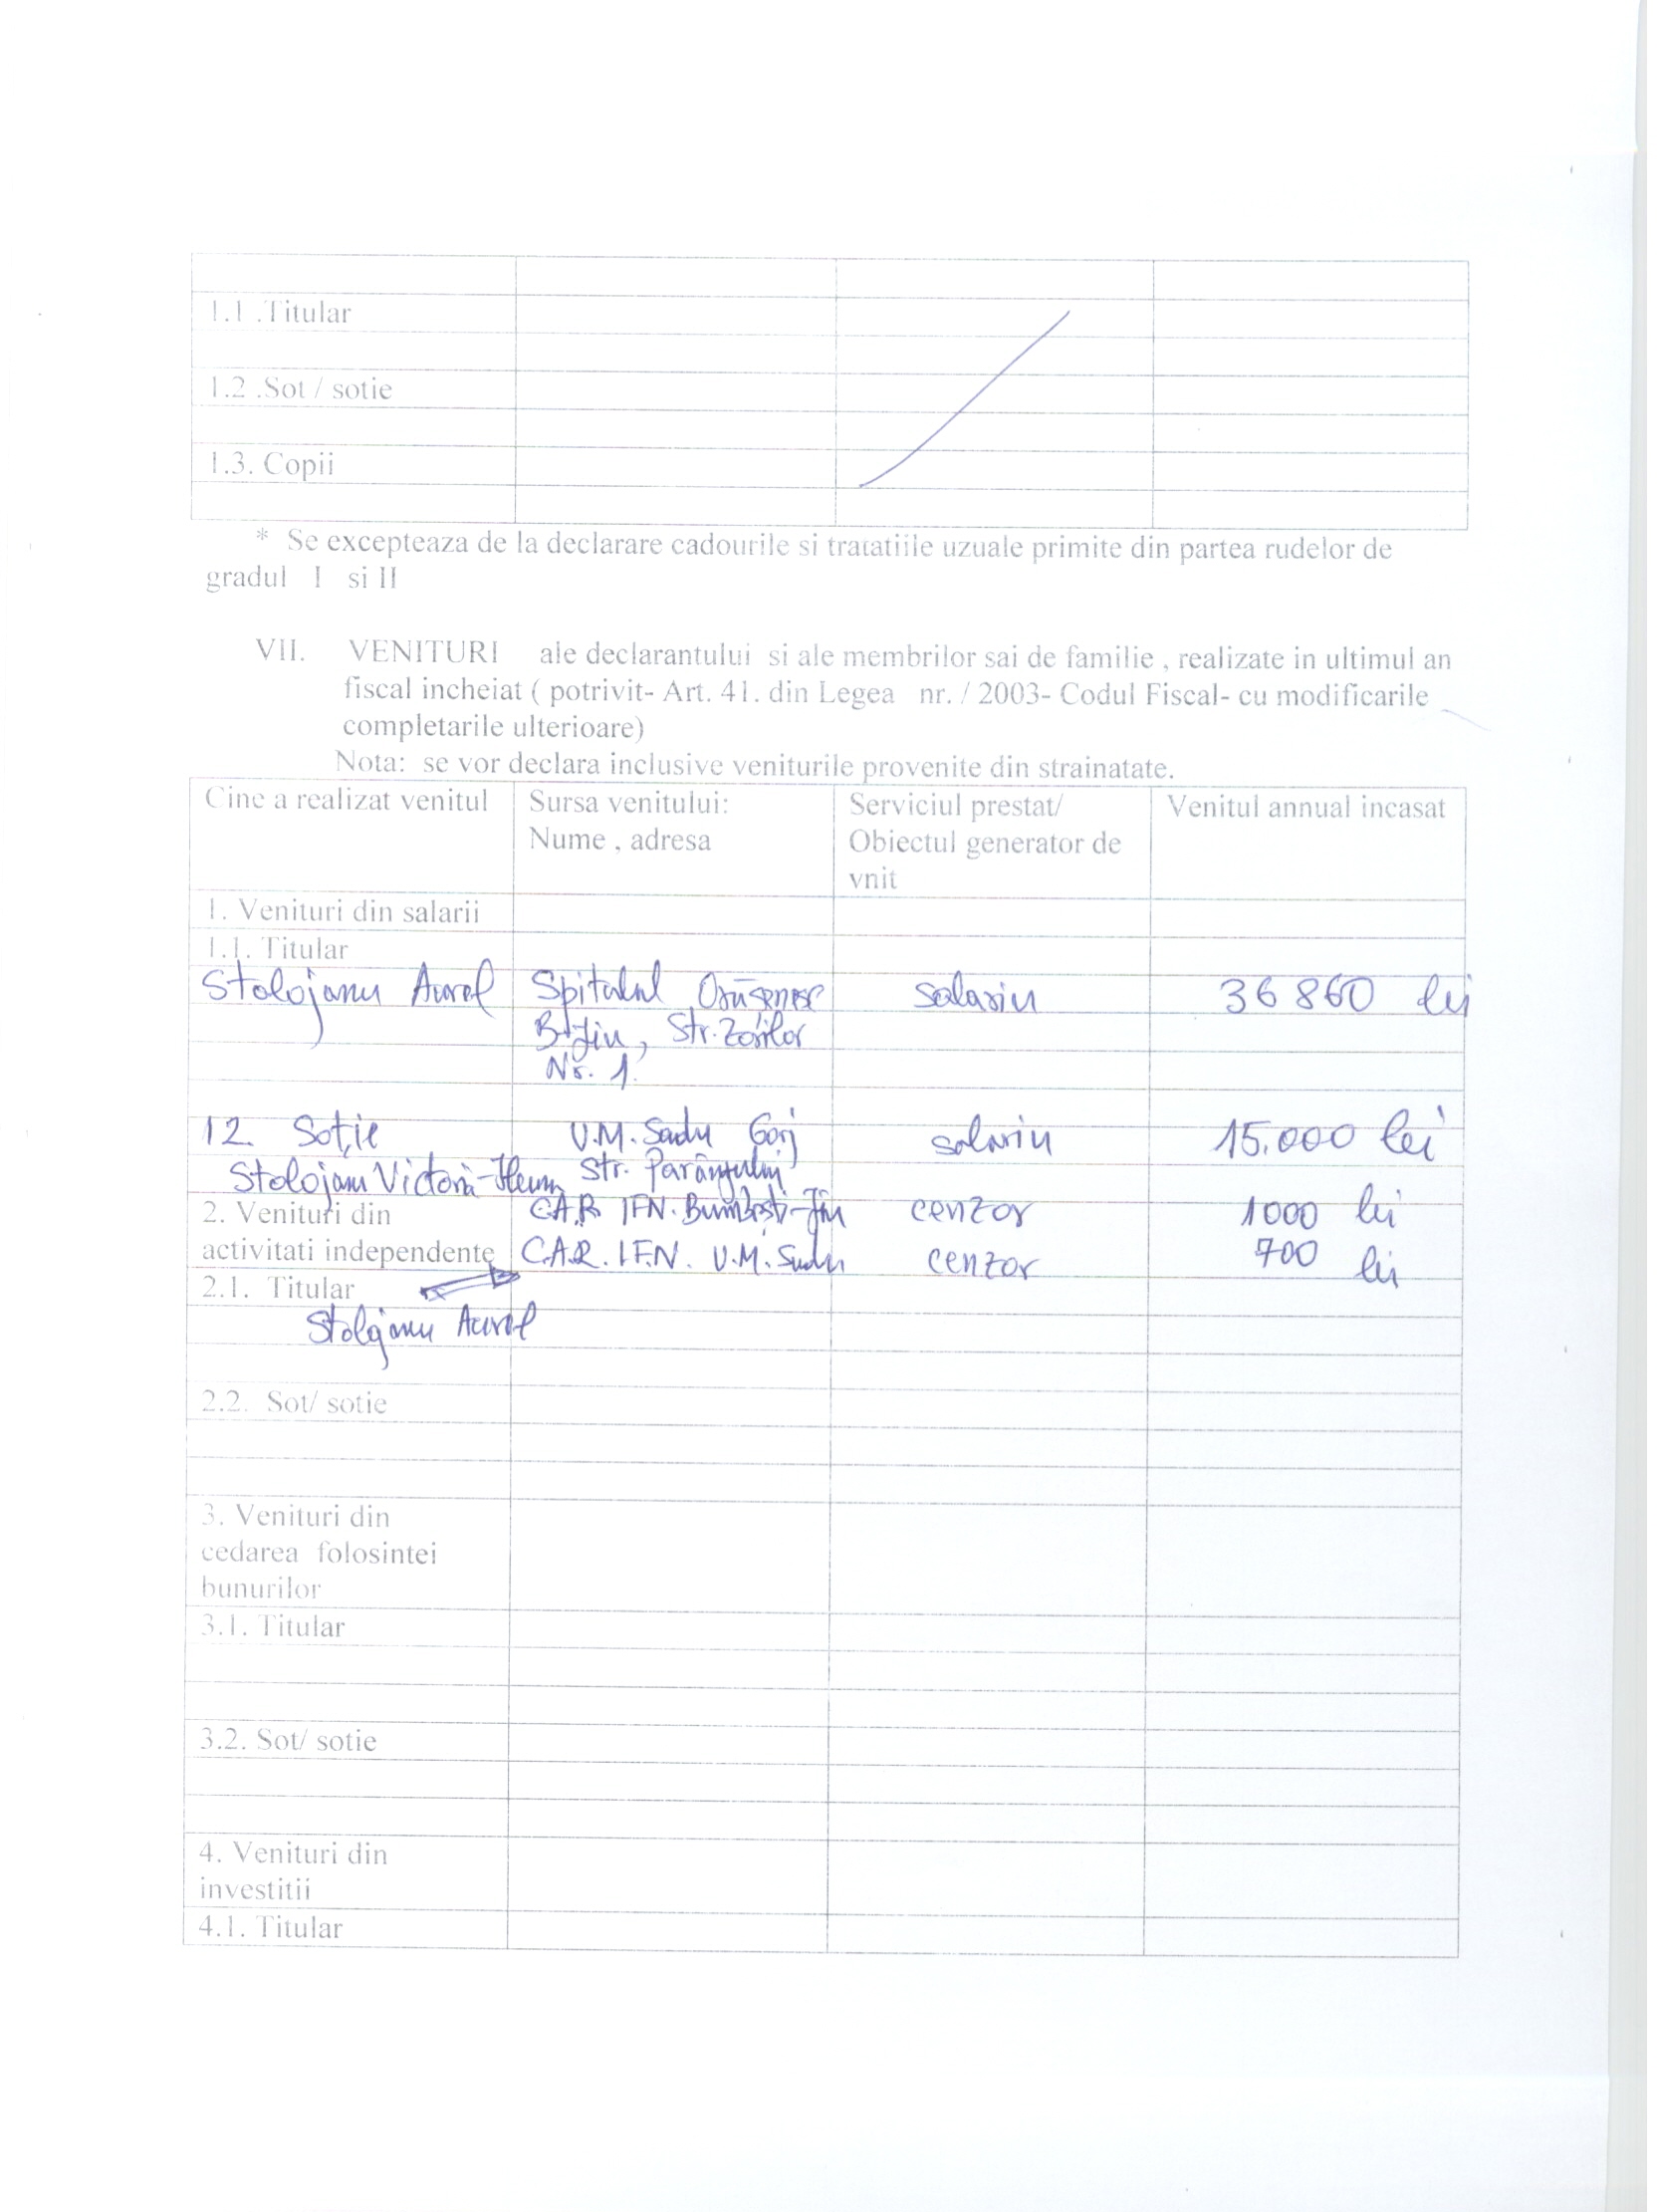 1.1 .Titular
1.2 .Sot / sotie
1.3. Copii
* Se excepteaza de la declarare cadourile si tratatiile uzuale primite din partea rudelor de
gradul I si II
VII. VENITURI ale declarantului si ale membrilor sai de familie , realizate in ultimul an
fiscal incheiat ( potrivit- Art. 41. din Legea nr. / 2003- Codul Fiscal- cu modificarile
completarile ulterioare)
Nota: se vor declara inclusive veniturile provenite din strainatate.
Cine a realizat venitul Sursa venitului: Serviciul prestat/ Venitul annual incasat
Nume , adresa Obiectul generator de
vnit
1. Venituri din salarii
1.1. Titular
Stolojanu Aurel Spitalul Orășenesc salariu 36860 lei
B-Jiu, Str. Zorilor
Nr. 1.
12. Soție U.M. Sadu Gorj salariu 15.000 lei
Stolojanu Victoria-Ileana Str. Parângului
2. Venituri din C.A.R. IFN. Bumbești-Jiu cenzor 1000 lei
activitati independente C.A.R. I.F.N. U.M. Sadu cenzor 700 lei
2.1. Titular
Stolojanu Aurel
2.2. Sot/ sotie
3. Venituri din
cedarea folosintei
bunurilor
3.1. Titular
3.2. Sot/ sotie
4. Venituri din
investitii
4.1. Titular